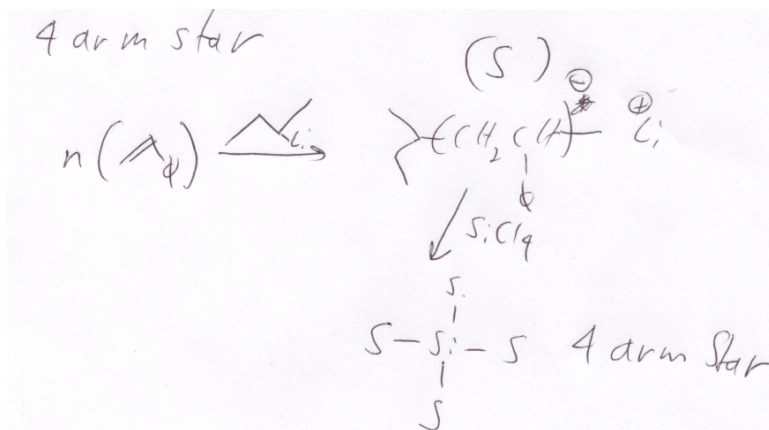 4 arm star
(S)
⊖
⊕
n( φ) Li (CH2CH) Li
φ
SiCl4
S
S-Si-S 4 arm Star
S